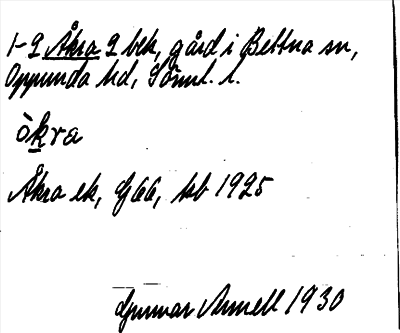 1-2 Åkra 2 bek, gård i Bettna sn,
Oppunda hd, Söml. l.
òkra
Åkra ek, G66, kb 1925
Gunnar Arnell 1930